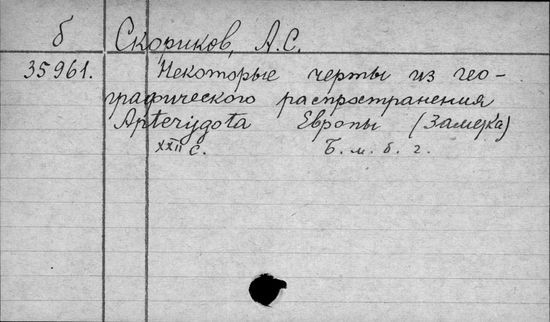 б Скориков, А.С.
35961. Некоторые черты из гео-
графического распространения
Apterygota Европы (Замѣтка)
XXII с. Б. м. б. г.